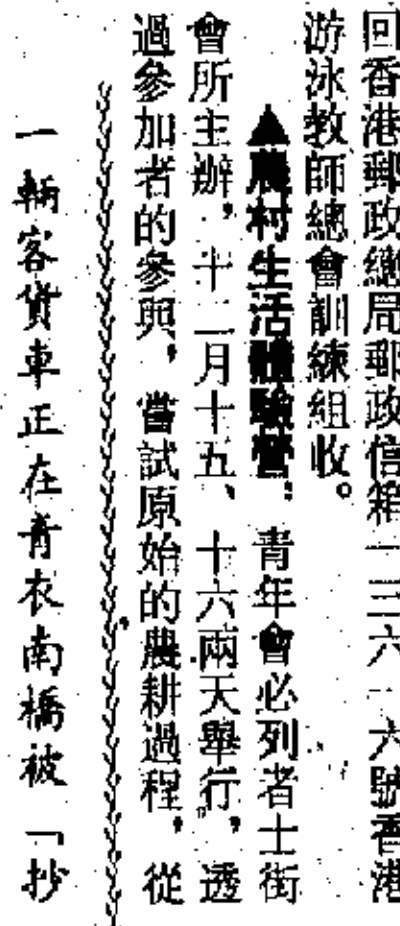 回香港郵政總局郵政信箱一三六一六號香港
游泳教師總會訓練組收。
▲農村生活體驗營：青年會必列者士街
會所主辦，十二月十五、十六兩天舉行，透
過參加者的參與，嘗試原始的農耕過程，從
一輛客貨車正在青衣南橋被「抄